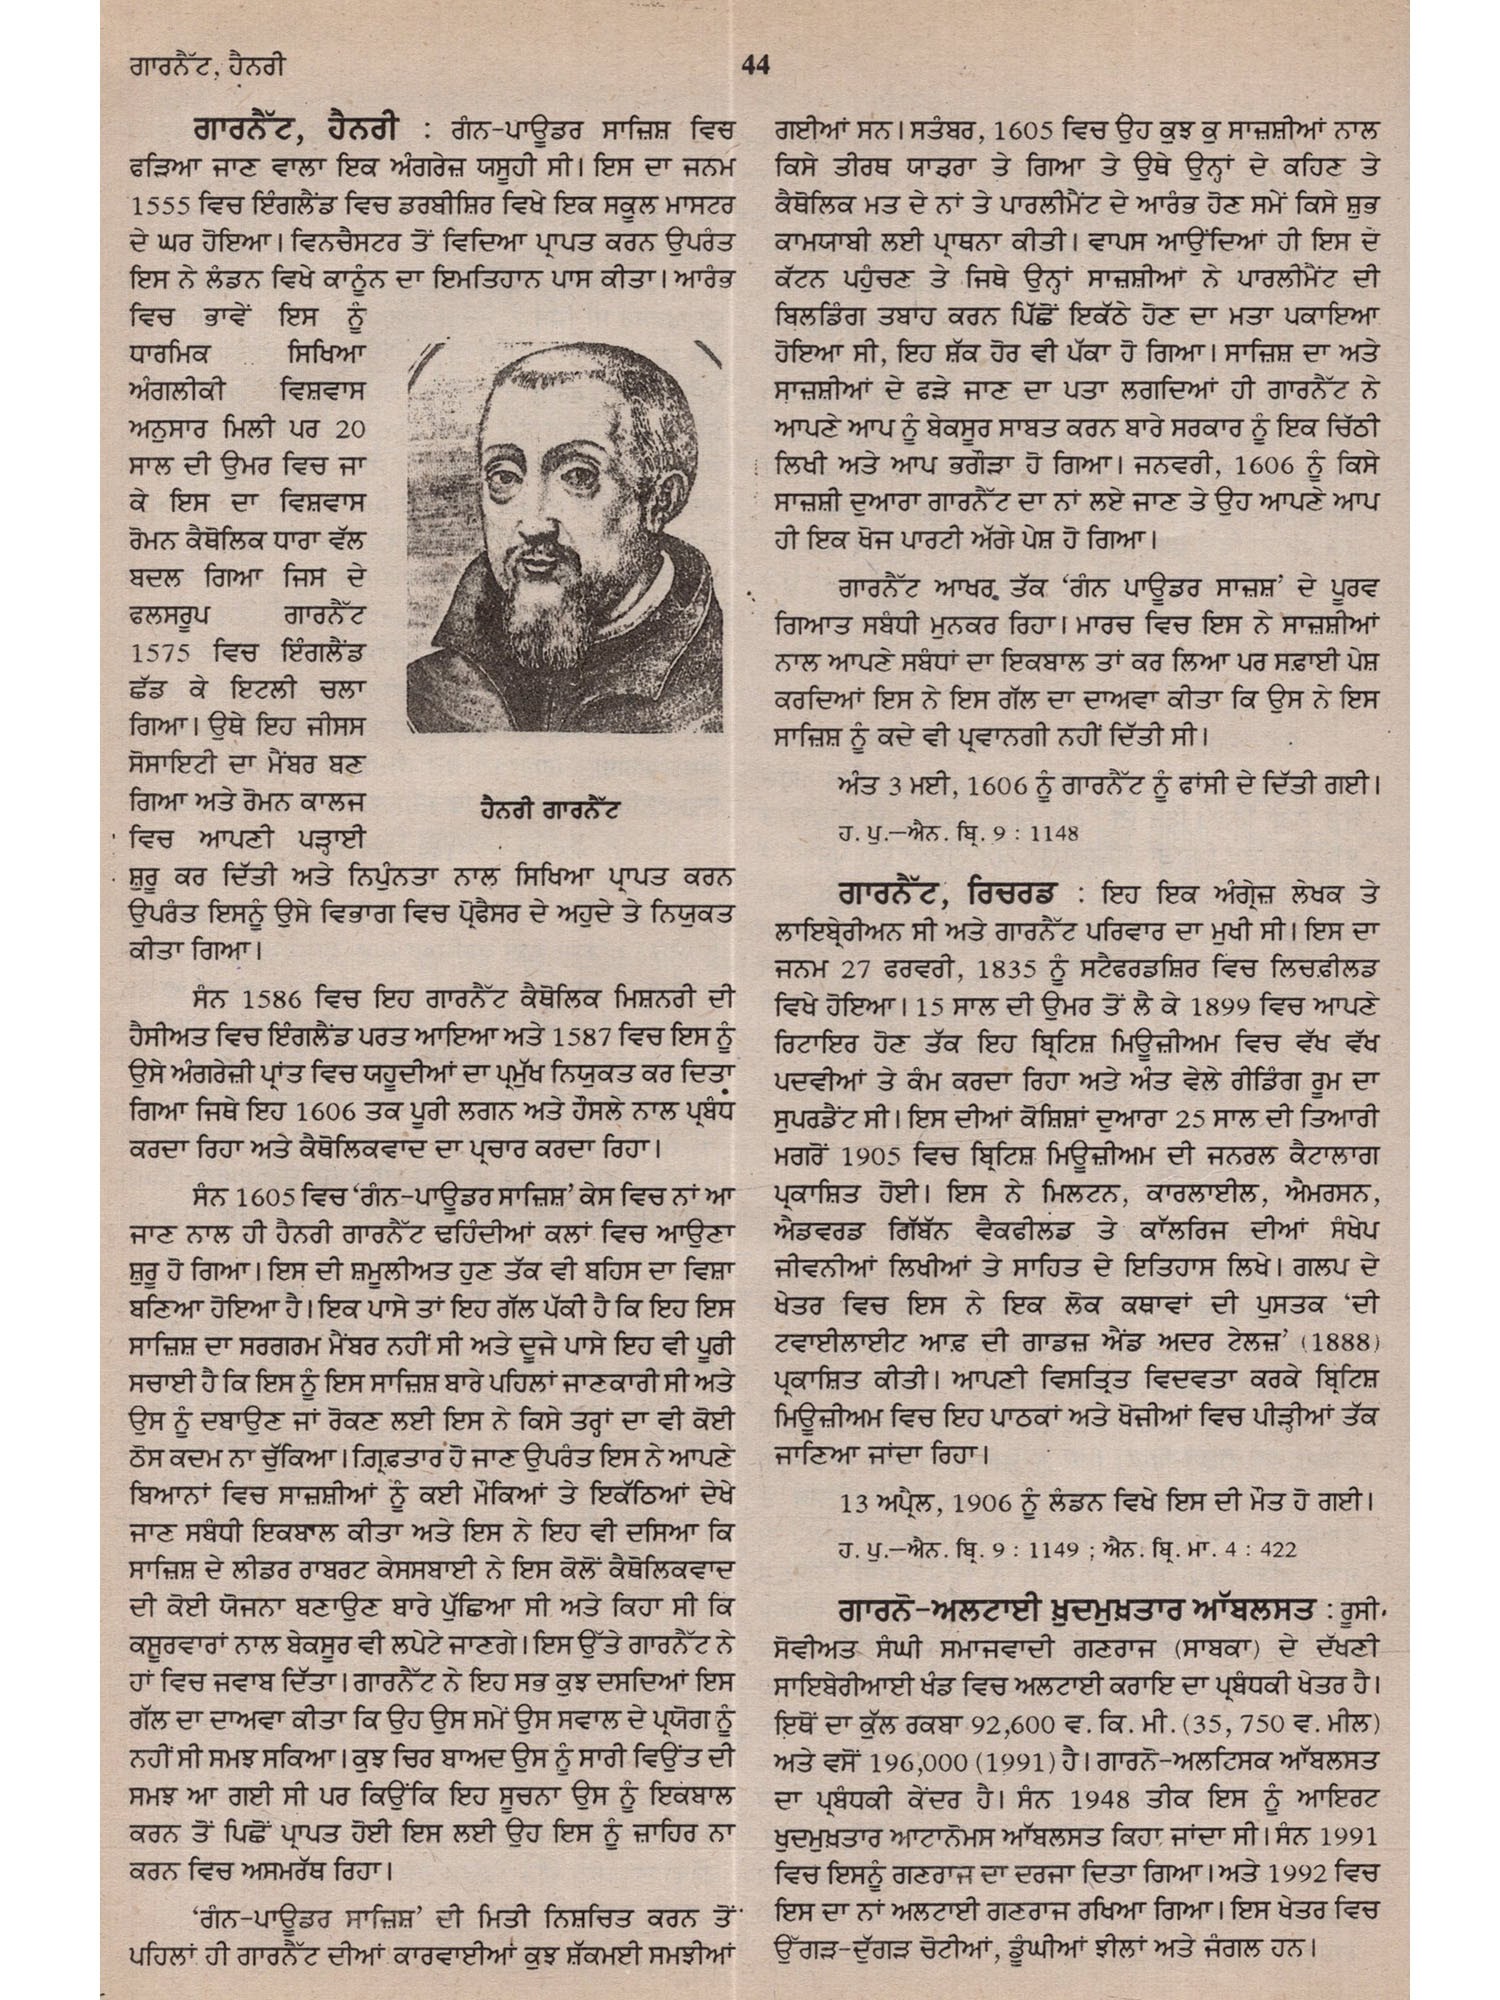 ਗਾਰਨੈੱਟ, ਹੈਨਰੀ
44
ਗਾਰਨੈੱਟ, ਹੈਨਰੀ : ਗੰਨ-ਪਾਊਡਰ ਸਾਜ਼ਿਸ਼ ਵਿਚ
ਫੜਿਆ ਜਾਣ ਵਾਲਾ ਇਕ ਅੰਗਰੇਜ਼ ਯਸੂਹੀ ਸੀ। ਇਸ ਦਾ ਜਨਮ
1555 ਵਿਚ ਇੰਗਲੈਂਡ ਵਿਚ ਡਰਬੀਸ਼ਿਰ ਵਿਖੇ ਇਕ ਸਕੂਲ ਮਾਸਟਰ
ਦੇ ਘਰ ਹੋਇਆ। ਵਿਨਚੈਸਟਰ ਤੋਂ ਵਿਦਿਆ ਪ੍ਰਾਪਤ ਕਰਨ ਉਪਰੰਤ
ਇਸ ਨੇ ਲੰਡਨ ਵਿਖੇ ਕਾਨੂੰਨ ਦਾ ਇਮਤਿਹਾਨ ਪਾਸ ਕੀਤਾ। ਆਰੰਭ
ਵਿਚ ਭਾਵੇਂ ਇਸ ਨੂੰ
ਧਾਰਮਿਕ ਸਿਖਿਆ
ਅੰਗਲੀਕੀ ਵਿਸ਼ਵਾਸ
ਅਨੁਸਾਰ ਮਿਲੀ ਪਰ 20
ਸਾਲ ਦੀ ਉਮਰ ਵਿਚ ਜਾ
ਕੇ ਇਸ ਦਾ ਵਿਸ਼ਵਾਸ
ਰੋਮਨ ਕੈਥੋਲਿਕ ਧਾਰਾ ਵੱਲ
ਬਦਲ ਗਿਆ ਜਿਸ ਦੇ
ਫਲਸਰੂਪ ਗਾਰਨੈੱਟ
1575 ਵਿਚ ਇੰਗਲੈਂਡ
ਛੱਡ ਕੇ ਇਟਲੀ ਚਲਾ
ਗਿਆ। ਉਥੇ ਇਹ ਜੀਸਸ
ਸੋਸਾਇਟੀ ਦਾ ਮੈਂਬਰ ਬਣ
ਗਿਆ ਅਤੇ ਰੋਮਨ ਕਾਲਜ
ਵਿਚ ਆਪਣੀ ਪੜ੍ਹਾਈ
ਹੈਨਰੀ ਗਾਰਨੈੱਟ
ਸ਼ੁਰੂ ਕਰ ਦਿੱਤੀ ਅਤੇ ਨਿਪੁੰਨਤਾ ਨਾਲ ਸਿਖਿਆ ਪ੍ਰਾਪਤ ਕਰਨ
ਉਪਰੰਤ ਇਸਨੂੰ ਉਸੇ ਵਿਭਾਗ ਵਿਚ ਪ੍ਰੋਫੈਸਰ ਦੇ ਅਹੁਦੇ ਤੇ ਨਿਯੁਕਤ
ਕੀਤਾ ਗਿਆ।
ਸੰਨ 1586 ਵਿਚ ਇਹ ਗਾਰਨੈੱਟ ਕੈਥੋਲਿਕ ਮਿਸ਼ਨਰੀ ਦੀ
ਹੈਸੀਅਤ ਵਿਚ ਇੰਗਲੈਂਡ ਪਰਤ ਆਇਆ ਅਤੇ 1587 ਵਿਚ ਇਸ ਨੂੰ
ਉਸੇ ਅੰਗਰੇਜ਼ੀ ਪ੍ਰਾਂਤ ਵਿਚ ਯਹੂਦੀਆਂ ਦਾ ਪ੍ਰਮੁੱਖ ਨਿਯੁਕਤ ਕਰ ਦਿਤਾ
ਗਿਆ ਜਿਥੇ ਇਹ 1606 ਤਕ ਪੂਰੀ ਲਗਨ ਅਤੇ ਹੌਸਲੇ ਨਾਲ ਪ੍ਰਬੰਧ
ਕਰਦਾ ਰਿਹਾ ਅਤੇ ਕੈਥੋਲਿਕਵਾਦ ਦਾ ਪ੍ਰਚਾਰ ਕਰਦਾ ਰਿਹਾ।
ਸੰਨ 1605 ਵਿਚ ‘ਗੰਨ-ਪਾਊਡਰ ਸਾਜ਼ਿਸ਼’ ਕੇਸ ਵਿਚ ਨਾਂ ਆ
ਜਾਣ ਨਾਲ ਹੀ ਹੈਨਰੀ ਗਾਰਨੈੱਟ ਢਹਿੰਦੀਆਂ ਕਲਾਂ ਵਿਚ ਆਉਣਾ
ਸ਼ੁਰੂ ਹੋ ਗਿਆ। ਇਸ ਦੀ ਸ਼ਮੂਲੀਅਤ ਹੁਣ ਤੱਕ ਵੀ ਬਹਿਸ ਦਾ ਵਿਸ਼ਾ
ਬਣਿਆ ਹੋਇਆ ਹੈ। ਇਕ ਪਾਸੇ ਤਾਂ ਇਹ ਗੱਲ ਪੱਕੀ ਹੈ ਕਿ ਇਹ ਇਸ
ਸਾਜ਼ਿਸ਼ ਦਾ ਸਰਗਰਮ ਮੈਂਬਰ ਨਹੀਂ ਸੀ ਅਤੇ ਦੂਜੇ ਪਾਸੇ ਇਹ ਵੀ ਪੂਰੀ
ਸਚਾਈ ਹੈ ਕਿ ਇਸ ਨੂੰ ਇਸ ਸਾਜ਼ਿਸ਼ ਬਾਰੇ ਪਹਿਲਾਂ ਜਾਣਕਾਰੀ ਸੀ ਅਤੇ
ਉਸ ਨੂੰ ਦਬਾਉਣ ਜਾਂ ਰੋਕਣ ਲਈ ਇਸ ਨੇ ਕਿਸੇ ਤਰ੍ਹਾਂ ਦਾ ਵੀ ਕੋਈ
ਠੋਸ ਕਦਮ ਨਾ ਚੁੱਕਿਆ। ਗ੍ਰਿਫ਼ਤਾਰ ਹੋ ਜਾਣ ਉਪਰੰਤ ਇਸ ਨੇ ਆਪਣੇ
ਬਿਆਨਾਂ ਵਿਚ ਸਾਜ਼ਸ਼ੀਆਂ ਨੂੰ ਕਈ ਮੌਕਿਆਂ ਤੇ ਇਕੱਠਿਆਂ ਦੇਖੇ
ਜਾਣ ਸਬੰਧੀ ਇਕਬਾਲ ਕੀਤਾ ਅਤੇ ਇਸ ਨੇ ਇਹ ਵੀ ਦਸਿਆ ਕਿ
ਸਾਜ਼ਿਸ਼ ਦੇ ਲੀਡਰ ਰਾਬਰਟ ਕੇਸਸਬਾਈ ਨੇ ਇਸ ਕੋਲੋਂ ਕੈਥੋਲਿਕਵਾਦ
ਦੀ ਕੋਈ ਯੋਜਨਾ ਬਣਾਉਣ ਬਾਰੇ ਪੁੱਛਿਆ ਸੀ ਅਤੇ ਕਿਹਾ ਸੀ ਕਿ
ਕਸੂਰਵਾਰਾਂ ਨਾਲ ਬੇਕਸੂਰ ਵੀ ਲਪੇਟੇ ਜਾਣਗੇ। ਇਸ ਉੱਤੇ ਗਾਰਨੈੱਟ ਨੇ
ਹਾਂ ਵਿਚ ਜਵਾਬ ਦਿੱਤਾ। ਗਾਰਨੈੱਟ ਨੇ ਇਹ ਸਭ ਕੁਝ ਦਸਦਿਆਂ ਇਸ
ਗੱਲ ਦਾ ਦਾਅਵਾ ਕੀਤਾ ਕਿ ਉਹ ਉਸ ਸਮੇਂ ਉਸ ਸਵਾਲ ਦੇ ਪ੍ਰਯੋਗ ਨੂੰ
ਨਹੀਂ ਸੀ ਸਮਝ ਸਕਿਆ। ਕੁਝ ਚਿਰ ਬਾਅਦ ਉਸ ਨੂੰ ਸਾਰੀ ਵਿਉਂਤ ਦੀ
ਸਮਝ ਆ ਗਈ ਸੀ ਪਰ ਕਿਉਂਕਿ ਇਹ ਸੂਚਨਾ ਉਸ ਨੂੰ ਇਕਬਾਲ
ਕਰਨ ਤੋਂ ਪਿਛੋਂ ਪ੍ਰਾਪਤ ਹੋਈ ਇਸ ਲਈ ਉਹ ਇਸ ਨੂੰ ਜ਼ਾਹਿਰ ਨਾ
ਕਰਨ ਵਿਚ ਅਸਮਰੱਥ ਰਿਹਾ।
‘ਗੰਨ-ਪਾਊਡਰ ਸਾਜ਼ਿਸ਼’ ਦੀ ਮਿਤੀ ਨਿਸ਼ਚਿਤ ਕਰਨ ਤੋਂ
ਪਹਿਲਾਂ ਹੀ ਗਾਰਨੈੱਟ ਦੀਆਂ ਕਾਰਵਾਈਆਂ ਕੁਝ ਸ਼ੱਕਮਈ ਸਮਝੀਆਂ
ਗਈਆਂ ਸਨ। ਸਤੰਬਰ, 1605 ਵਿਚ ਉਹ ਕੁਝ ਕੁ ਸਾਜ਼ਸ਼ੀਆਂ ਨਾਲ
ਕਿਸੇ ਤੀਰਥ ਯਾਤਰਾ ਤੇ ਗਿਆ ਤੇ ਉਥੇ ਉਨ੍ਹਾਂ ਦੇ ਕਹਿਣ ਤੇ
ਕੈਥੋਲਿਕ ਮਤ ਦੇ ਨਾਂ ਤੇ ਪਾਰਲੀਮੈਂਟ ਦੇ ਆਰੰਭ ਹੋਣ ਸਮੇਂ ਕਿਸੇ ਸ਼ੁਭ
ਕਾਮਯਾਬੀ ਲਈ ਪ੍ਰਾਥਨਾ ਕੀਤੀ। ਵਾਪਸ ਆਉਂਦਿਆਂ ਹੀ ਇਸ ਦੇ
ਕੱਟਨ ਪਹੁੰਚਣ ਤੇ ਜਿਥੇ ਉਨ੍ਹਾਂ ਸਾਜ਼ਸ਼ੀਆਂ ਨੇ ਪਾਰਲੀਮੈਂਟ ਦੀ
ਬਿਲਡਿੰਗ ਤਬਾਹ ਕਰਨ ਪਿੱਛੋਂ ਇਕੱਠੇ ਹੋਣ ਦਾ ਮਤਾ ਪਕਾਇਆ
ਹੋਇਆ ਸੀ, ਇਹ ਸ਼ੱਕ ਹੋਰ ਵੀ ਪੱਕਾ ਹੋ ਗਿਆ। ਸਾਜ਼ਿਸ਼ ਦਾ ਅਤੇ
ਸਾਜ਼ਸ਼ੀਆਂ ਦੇ ਫੜੇ ਜਾਣ ਦਾ ਪਤਾ ਲਗਦਿਆਂ ਹੀ ਗਾਰਨੈੱਟ ਨੇ
ਆਪਣੇ ਆਪ ਨੂੰ ਬੇਕਸੂਰ ਸਾਬਤ ਕਰਨ ਬਾਰੇ ਸਰਕਾਰ ਨੂੰ ਇਕ ਚਿੱਠੀ
ਲਿਖੀ ਅਤੇ ਆਪ ਭਗੌੜਾ ਹੋ ਗਿਆ। ਜਨਵਰੀ, 1606 ਨੂੰ ਕਿਸੇ
ਸਾਜ਼ਸ਼ੀ ਦੁਆਰਾ ਗਾਰਨੈੱਟ ਦਾ ਨਾਂ ਲਏ ਜਾਣ ਤੇ ਉਹ ਆਪਣੇ ਆਪ
ਹੀ ਇਕ ਖੋਜ ਪਾਰਟੀ ਅੱਗੇ ਪੇਸ਼ ਹੋ ਗਿਆ।
ਗਾਰਨੈੱਟ ਆਖਰ ਤੱਕ ‘ਗੰਨ ਪਾਊਡਰ ਸਾਜ਼ਸ਼’ ਦੇ ਪੂਰਵ
ਗਿਆਤ ਸਬੰਧੀ ਮੁਨਕਰ ਰਿਹਾ। ਮਾਰਚ ਵਿਚ ਇਸ ਨੇ ਸਾਜ਼ਸ਼ੀਆਂ
ਨਾਲ ਆਪਣੇ ਸਬੰਧਾਂ ਦਾ ਇਕਬਾਲ ਤਾਂ ਕਰ ਲਿਆ ਪਰ ਸਫ਼ਾਈ ਪੇਸ਼
ਕਰਦਿਆਂ ਇਸ ਨੇ ਇਸ ਗੱਲ ਦਾ ਦਾਅਵਾ ਕੀਤਾ ਕਿ ਉਸ ਨੇ ਇਸ
ਸਾਜ਼ਿਸ਼ ਨੂੰ ਕਦੇ ਵੀ ਪ੍ਰਵਾਨਗੀ ਨਹੀਂ ਦਿੱਤੀ ਸੀ।
ਅੰਤ 3 ਮਈ, 1606 ਨੂੰ ਗਾਰਨੈੱਟ ਨੂੰ ਫਾਂਸੀ ਦੇ ਦਿੱਤੀ ਗਈ।
ਹ. ਪੁ.—ਐਨ. ਬ੍ਰਿ. 9 : 1148
ਗਾਰਨੈੱਟ, ਰਿਚਰਡ : ਇਹ ਇਕ ਅੰਗ੍ਰੇਜ਼ ਲੇਖਕ ਤੇ
ਲਾਇਬ੍ਰੇਰੀਅਨ ਸੀ ਅਤੇ ਗਾਰਨੈੱਟ ਪਰਿਵਾਰ ਦਾ ਮੁਖੀ ਸੀ। ਇਸ ਦਾ
ਜਨਮ 27 ਫਰਵਰੀ, 1835 ਨੂੰ ਸਟੈਫਰਡਸ਼ਿਰ ਵਿਚ ਲਿਚਫ਼ੀਲਡ
ਵਿਖੇ ਹੋਇਆ। 15 ਸਾਲ ਦੀ ਉਮਰ ਤੋਂ ਲੈ ਕੇ 1899 ਵਿਚ ਆਪਣੇ
ਰਿਟਾਇਰ ਹੋਣ ਤੱਕ ਇਹ ਬ੍ਰਿਟਿਸ਼ ਮਿਊਜ਼ੀਅਮ ਵਿਚ ਵੱਖ ਵੱਖ
ਪਦਵੀਆਂ ਤੇ ਕੰਮ ਕਰਦਾ ਰਿਹਾ ਅਤੇ ਅੰਤ ਵੇਲੇ ਰੀਡਿੰਗ ਰੂਮ ਦਾ
ਸੁਪਰਡੈਂਟ ਸੀ। ਇਸ ਦੀਆਂ ਕੋਸ਼ਿਸ਼ਾਂ ਦੁਆਰਾ 25 ਸਾਲ ਦੀ ਤਿਆਰੀ
ਮਗਰੋਂ 1905 ਵਿਚ ਬ੍ਰਿਟਿਸ਼ ਮਿਊਜ਼ੀਅਮ ਦੀ ਜਨਰਲ ਕੈਟਾਲਾਗ
ਪ੍ਰਕਾਸ਼ਿਤ ਹੋਈ। ਇਸ ਨੇ ਮਿਲਟਨ, ਕਾਰਲਾਈਲ, ਐਮਰਸਨ,
ਐਡਵਰਡ ਗਿੱਬੱਨ ਵੈਕਫੀਲਡ ਤੇ ਕਾੱਲਰਿਜ ਦੀਆਂ ਸੰਖੇਪ
ਜੀਵਨੀਆਂ ਲਿਖੀਆਂ ਤੇ ਸਾਹਿਤ ਦੇ ਇਤਿਹਾਸ ਲਿਖੇ। ਗਲਪ ਦੇ
ਖੇਤਰ ਵਿਚ ਇਸ ਨੇ ਇਕ ਲੋਕ ਕਥਾਵਾਂ ਦੀ ਪੁਸਤਕ ‘ਦੀ
ਟਵਾਈਲਾਈਟ ਆਫ਼ ਦੀ ਗਾਡਜ਼ ਐਂਡ ਅਦਰ ਟੇਲਜ਼’ (1888)
ਪ੍ਰਕਾਸ਼ਿਤ ਕੀਤੀ। ਆਪਣੀ ਵਿਸਤ੍ਰਿਤ ਵਿਦਵਤਾ ਕਰਕੇ ਬ੍ਰਿਟਿਸ਼
ਮਿਊਜ਼ੀਅਮ ਵਿਚ ਇਹ ਪਾਠਕਾਂ ਅਤੇ ਖੋਜੀਆਂ ਵਿਚ ਪੀੜ੍ਹੀਆਂ ਤੱਕ
ਜਾਣਿਆ ਜਾਂਦਾ ਰਿਹਾ।
13 ਅਪ੍ਰੈਲ, 1906 ਨੂੰ ਲੰਡਨ ਵਿਖੇ ਇਸ ਦੀ ਮੌਤ ਹੋ ਗਈ।
ਹ. ਪੁ.—ਐਨ. ਬ੍ਰਿ. 9 : 1149 ; ਐਨ. ਬ੍ਰਿ. ਮਾ. 4 : 422
ਗਾਰਨੋ-ਅਲਟਾਈ ਖ਼ੁਦਮੁਖ਼ਤਾਰ ਆੱਬਲਸਤ : ਰੂਸੀ
ਸੋਵੀਅਤ ਸੰਘੀ ਸਮਾਜਵਾਦੀ ਗਣਰਾਜ (ਸਾਬਕਾ) ਦੇ ਦੱਖਣੀ
ਸਾਇਬੇਰੀਆਈ ਖੰਡ ਵਿਚ ਅਲਟਾਈ ਕਰਾਇ ਦਾ ਪ੍ਰਬੰਧਕੀ ਖੇਤਰ ਹੈ।
ਇਥੋਂ ਦਾ ਕੁੱਲ ਰਕਬਾ 92,600 ਵ. ਕਿ. ਮੀ. (35, 750 ਵ. ਮੀਲ)
ਅਤੇ ਵਸੋਂ 196,000 (1991) ਹੈ। ਗਾਰਨੋ-ਅਲਟਿਸਕ ਆੱਬਲਸਤ
ਦਾ ਪ੍ਰਬੰਧਕੀ ਕੇਂਦਰ ਹੈ। ਸੰਨ 1948 ਤੀਕ ਇਸ ਨੂੰ ਆਇਰਟ
ਖੁਦਮੁਖ਼ਤਾਰ ਆਟਾਨੋਮਸ ਆੱਬਲਸਤ ਕਿਹਾ ਜਾਂਦਾ ਸੀ। ਸੰਨ 1991
ਵਿਚ ਇਸਨੂੰ ਗਣਰਾਜ ਦਾ ਦਰਜਾ ਦਿਤਾ ਗਿਆ। ਅਤੇ 1992 ਵਿਚ
ਇਸ ਦਾ ਨਾਂ ਅਲਟਾਈ ਗਣਰਾਜ ਰਖਿਆ ਗਿਆ। ਇਸ ਖੇਤਰ ਵਿਚ
ਉੱਗੜ-ਦੁੱਗੜ ਚੋਟੀਆਂ, ਡੂੰਘੀਆਂ ਝੀਲਾਂ ਅਤੇ ਜੰਗਲ ਹਨ।